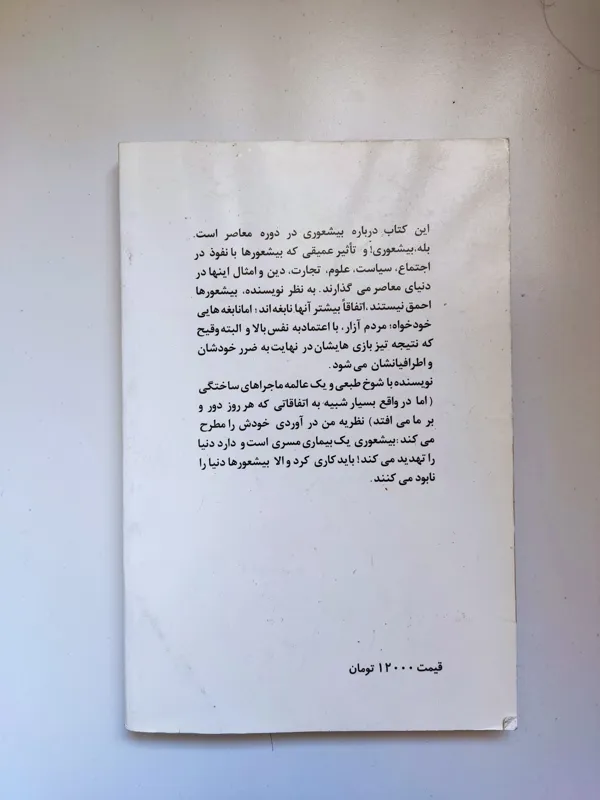 این کتاب درباره بیشعوری در دوره معاصر است.
بله،بیشعوری! و تأثیر عمیقی که بیشعورها با نفوذ در
اجتماع، سیاست، علوم، تجارت، دین و امثال اینها در
دنیای معاصر می گذارند. به نظر نویسنده، بیشعورها
احمق نیستند، اتفاقاً بیشتر آنها نابغه اند؛ امانابغه هایی
خودخواه؛ مردم آزار، با اعتمادبه نفس بالا و البته وقیح
که نتیجه تیز بازی هایشان در نهایت به ضرر خودشان
و اطرافیانشان می شود.
نویسنده با شوخ طبعی و یک عالمه ماجراهای ساختگی
( اما در واقع بسیار شبیه به اتفاقاتی که هر روز دور و
بر ما می افتد) نظریه من در آوردی خودش را مطرح
می کند:بیشعوری یک بیماری مسری است و دارد دنیا
را تهدید می کند! باید کاری کرد و الا بیشعورها دنیا را
نابود می کنند.
قیمت ۱۲۰۰۰ تومان